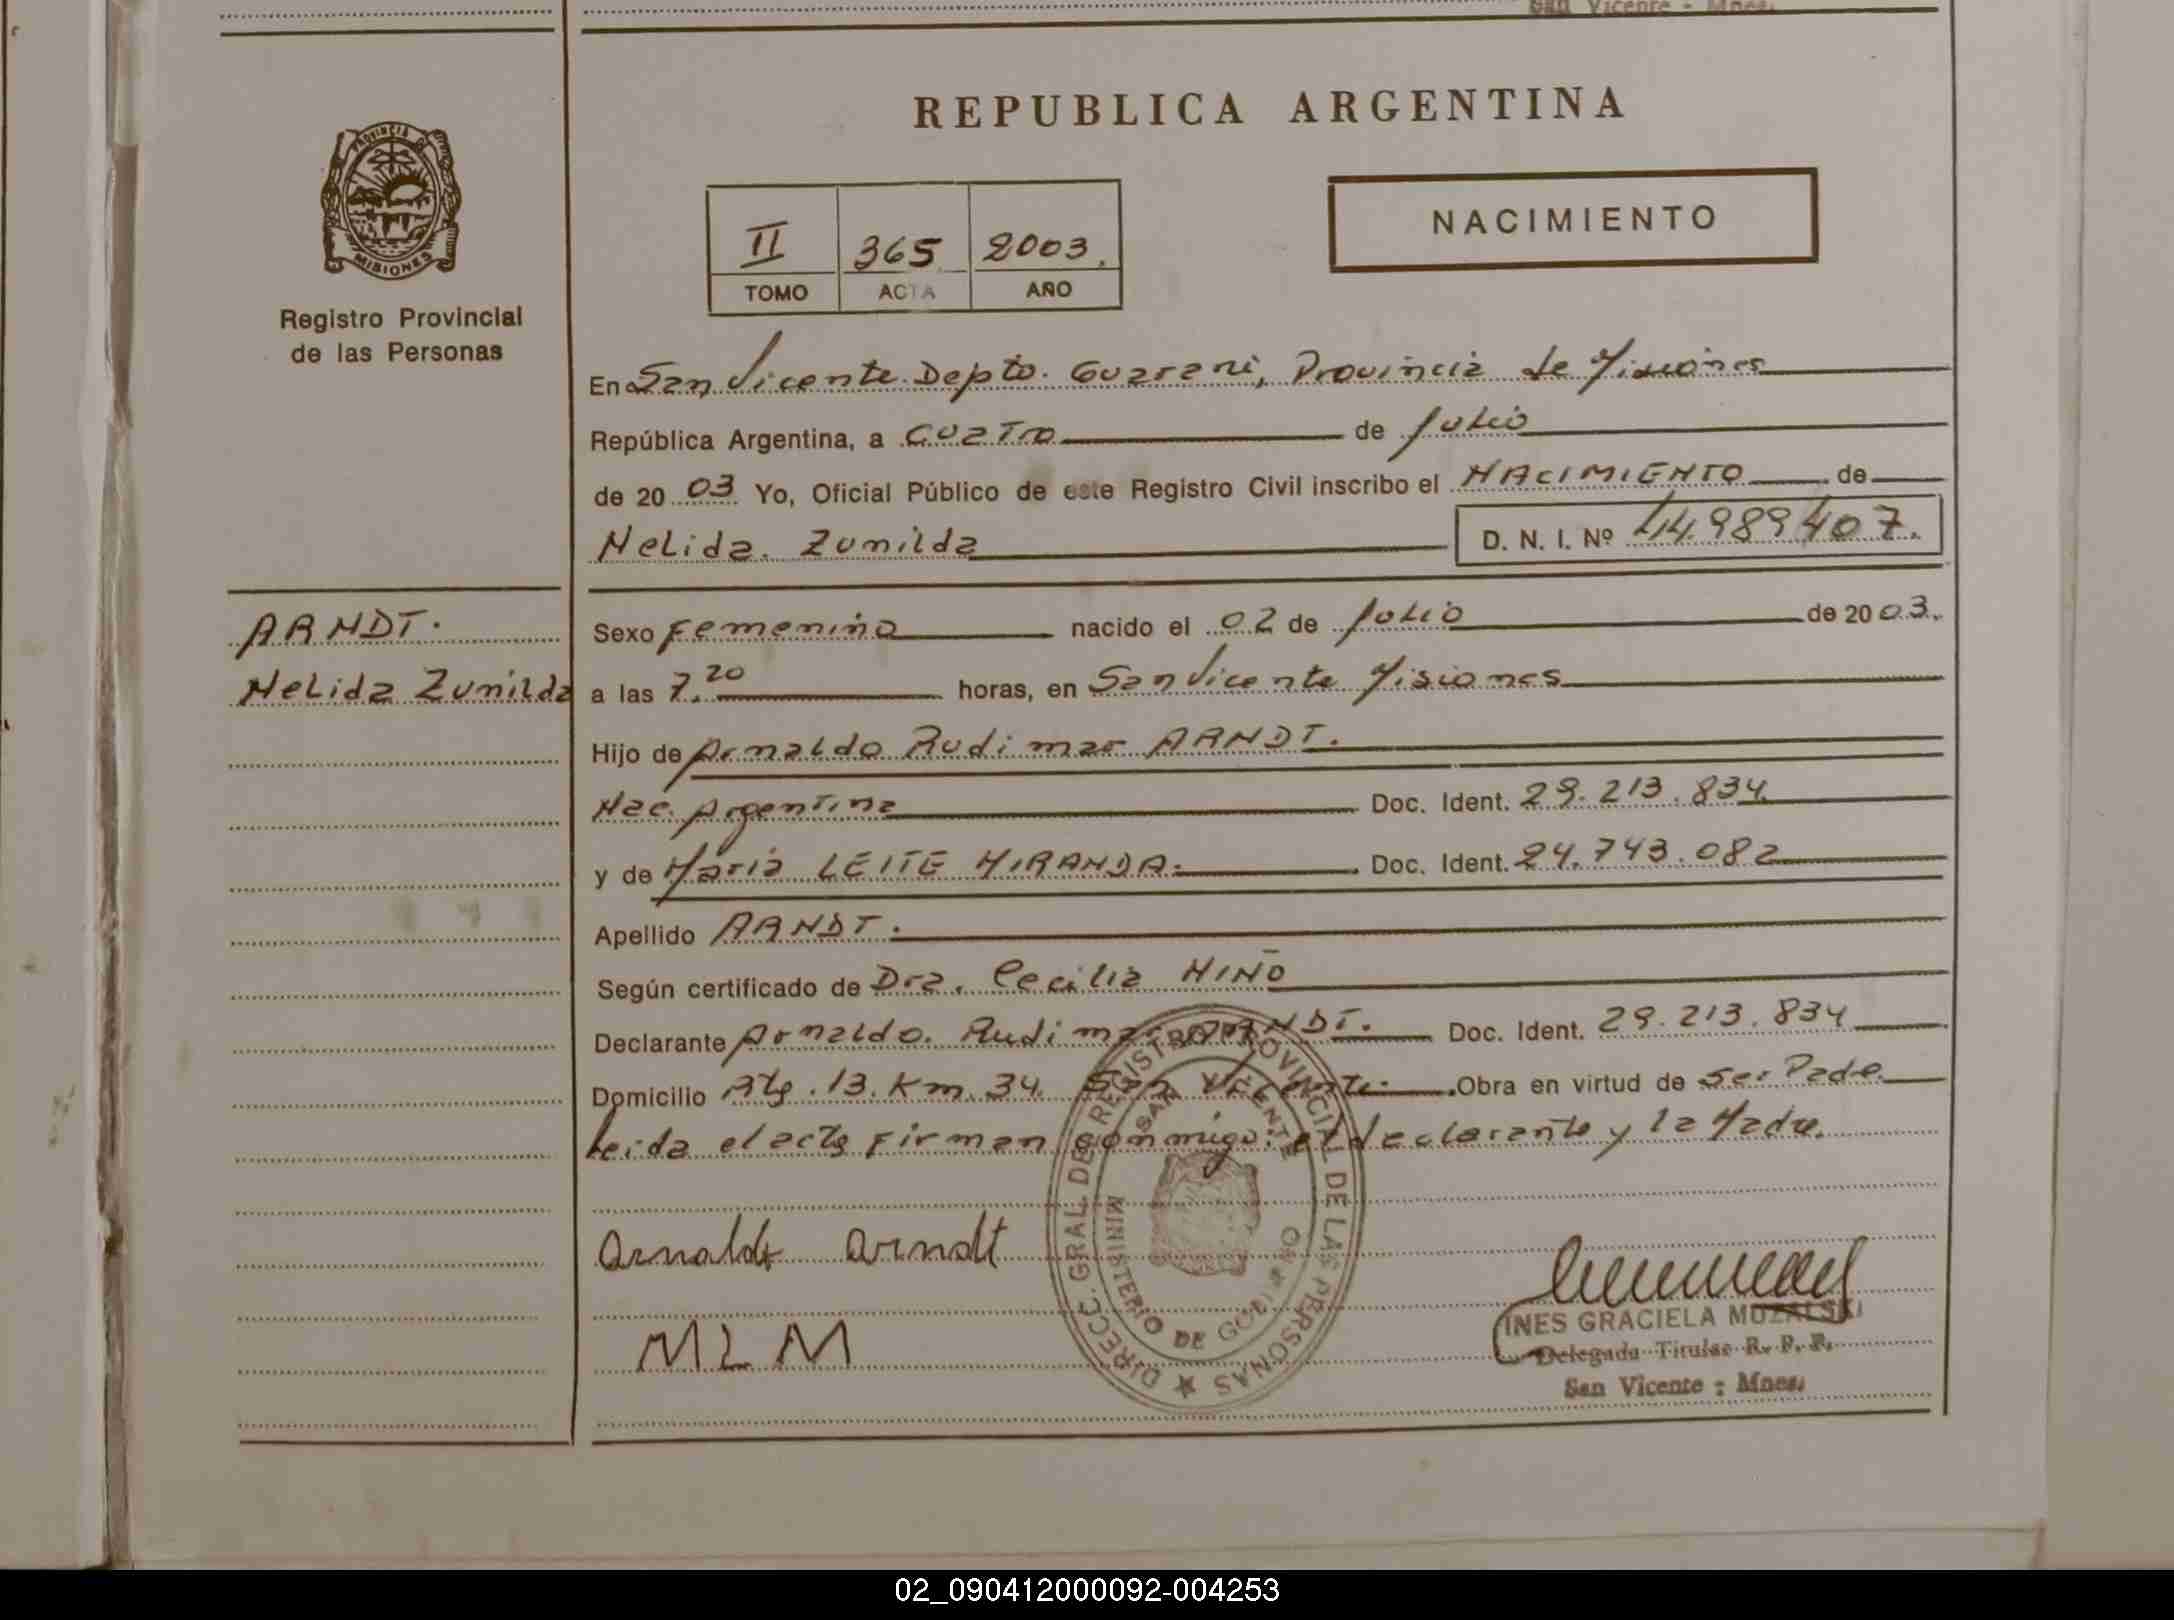 San Vicente - Mnes.
PROVINCIA DE
MISIONES
Registro Provincial
de las Personas
REPUBLICA ARGENTINA
II 365 2003.
TOMO ACTA AÑO
NACIMIENTO
En San Vicente. Depto. Guarani, Provincia de Misiones
República Argentina, a cuatro de Julio
de 20 03 Yo, Oficial Público de este Registro Civil inscribo el NACIMIENTO de
Nelida. Zunilda D. N. I. Nº 44.989407.
ARNDT.
Nelida Zunilda
Sexo Femenino nacido el 02 de Julio de 20 03.
a las 7.20 horas, en San Vicente Misiones
Hijo de Arnaldo Rudimar ARNDT.
Nac. Argentina Doc. Ident. 29.213.834
y de Maria LEITE MIRANDA. Doc. Ident. 24.743.082
Apellido ARNDT.
Según certificado de Dra. Cecilia NIÑO
Declarante Arnaldo. Rudimar ARNDT. Doc. Ident. 29.213.834
Domicilio Rta. 13. Km. 34. San Vicente. Obra en virtud de ser Padre
Leida el acta firman conmigo: el declarante y la Madre.
Arnaldo Arndt
MLM
DIRECC. GRAL. DE REGISTRO PROVINCIAL DE LAS PERSONAS
SAN VICENTE
MINISTERIO DE GOBIERNO
INES GRACIELA MUZALSKI
Delegada Titular R. P. P.
San Vicente - Mnes.
02_090412000092-004253